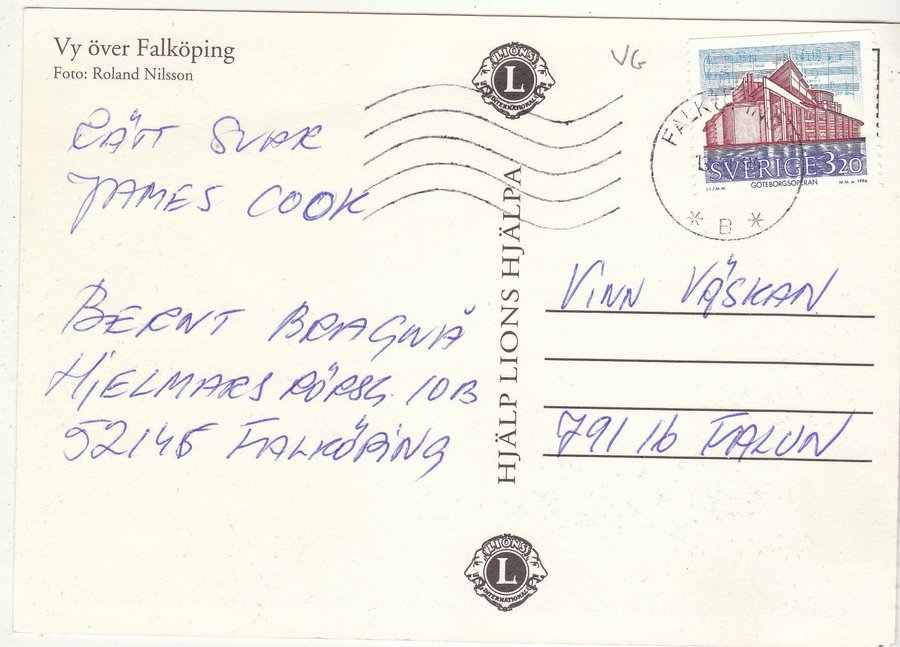 Vy över Falköping
Foto: Roland Nilsson
RÄTT SVAR
JAMES COOK
BERNT BRAGNÅ
HJELMARSRÖRSG. 10B
52145 FALKÖPING
LIONS
L
INTERNATIONAL
HJÄLP LIONS HJÄLPA
LIONS
L
INTERNATIONAL
VG
FALKÖPING
* B *
SVERIGE 3.20
GÖTEBORGSOPERAN
M M sc 1994
VINN VÄSKAN
791 16 FALUN